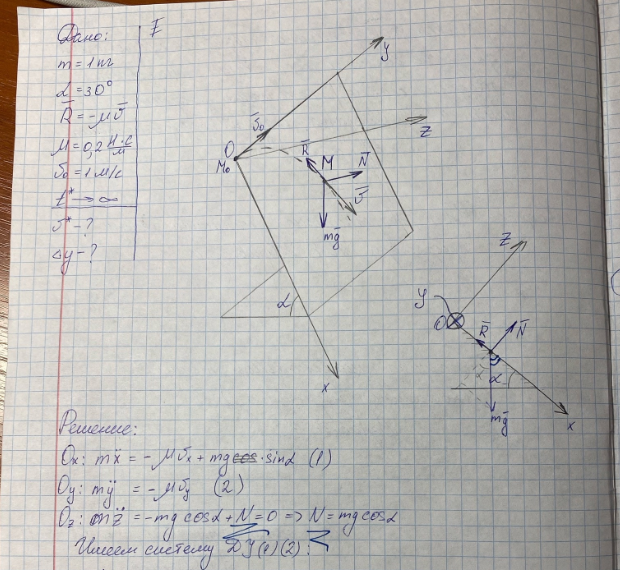 Дано:
m = 1 кг
α = 30°
R̅ = -μv̅
μ = 0,2 Н·с/м
v₀ = 1 м/с
t* → ∞
v* - ?
Δy - ?
y
v̅₀
z
O
M₀
R̅
M
N̅
v̅
mg̅
α
x
z
y
O
R̅
N̅
α
mg̅
x
Решение:
Ox: mẍ = -μvₓ + mg·sinα (1)
Oy: mÿ = -μvᵧ (2)
Oz: mz̈ = -mg cosα + N = 0 => N = mg cosα
Имеем систему ДУ (1) (2):